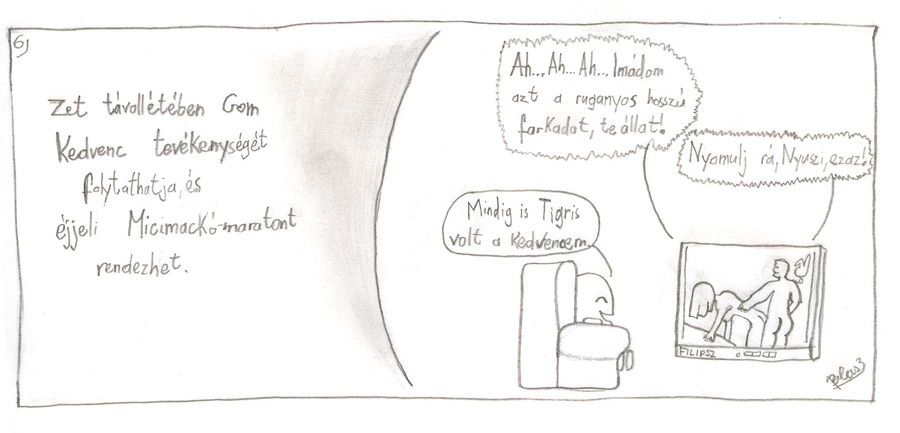 6)
Zet távollétében Gom
Kedvenc tevékenységét
folytathatja, és
éjjeli Micimackó-maratont
rendezhet.
Ah... Ah... Ah... Imádom
azt a ruganyos hosszú
farkadat, te állat!
Nyomulj rá, Nyuszi, ezaz!
Mindig is Tigris
volt a kedvencem.
FILIPSZ